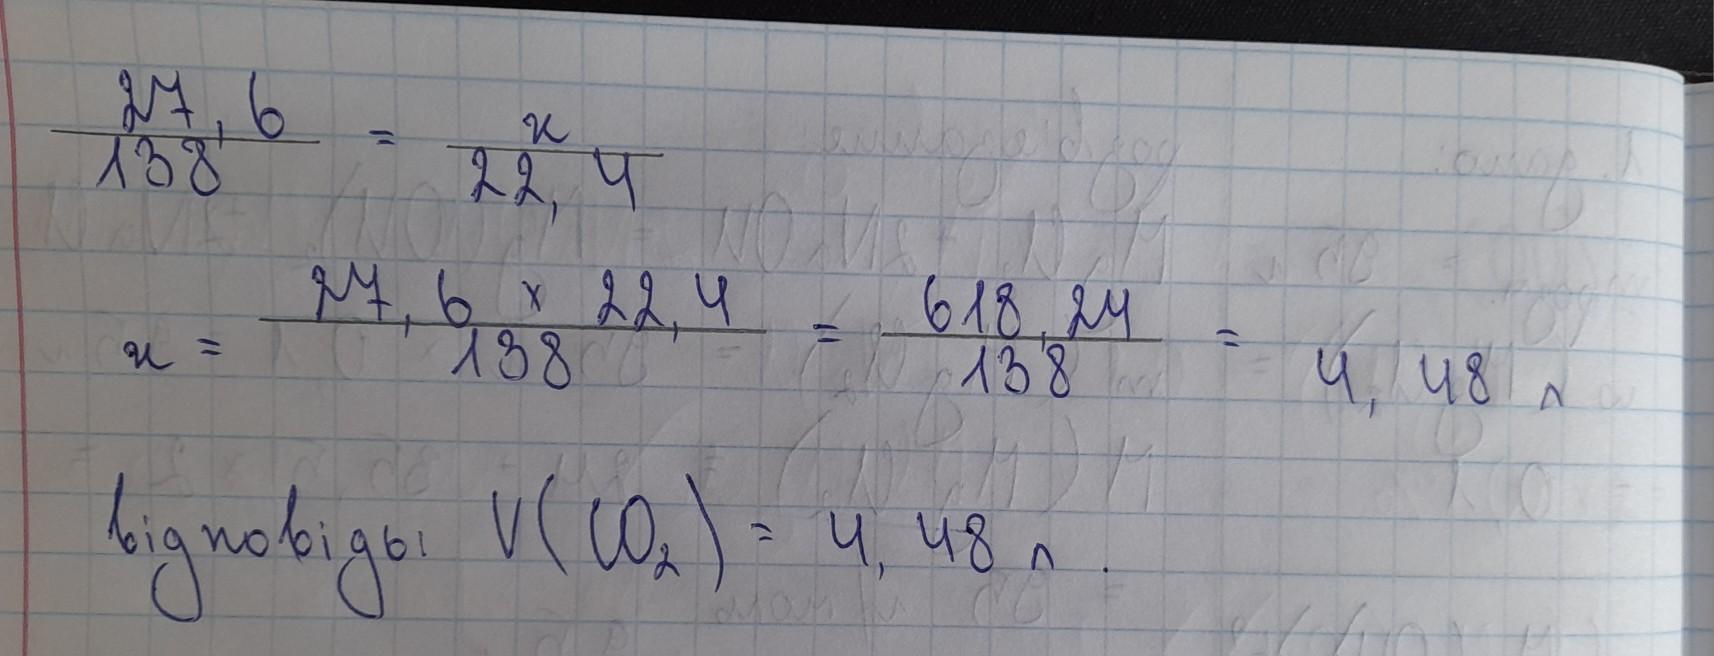 27,6/138 = x/22,4
x = 27,6 x 22,4/138 = 618,24/138 = 4,48 л
відповідь: V(CO₂) = 4,48 л.